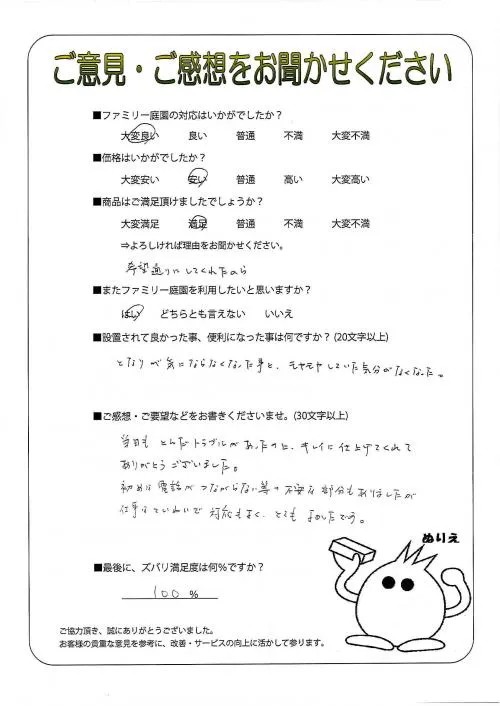 ご意見・ご感想をお聞かせください
■ファミリー庭園の対応はいかがでしたか？
大変良い 良い 普通 不満 大変不満
■価格はいかがでしたか？
大変安い 安い 普通 高い 大変高い
■商品はご満足頂けましたでしょうか？
大変満足 満足 普通 不満 大変不満
⇒よろしければ理由をお聞かせください。
希望通りにしてくれたから
■またファミリー庭園を利用したいと思いますか？
はい どちらとも言えない いいえ
■設置されて良かった事、便利になった事は何ですか？(20文字以上)
となりが気にならなくなった事と、モヤモヤしていた気分がなくなった。
■ご感想・ご要望などをお書きくださいませ。(30文字以上)
当日も とんだトラブルがあったのに、キレイに仕上げてくれて
ありがとうございました。
初めは電話がつながらない等の不安な部分もありましたが
仕事はていねいで 対応もよく、とても よかったです。
ぬりえ
■最後に、ズバリ満足度は何%ですか？
100 %
ご協力頂き、誠にありがとうございました。
お客様の貴重な意見を参考に、改善・サービスの向上に活かして参ります。